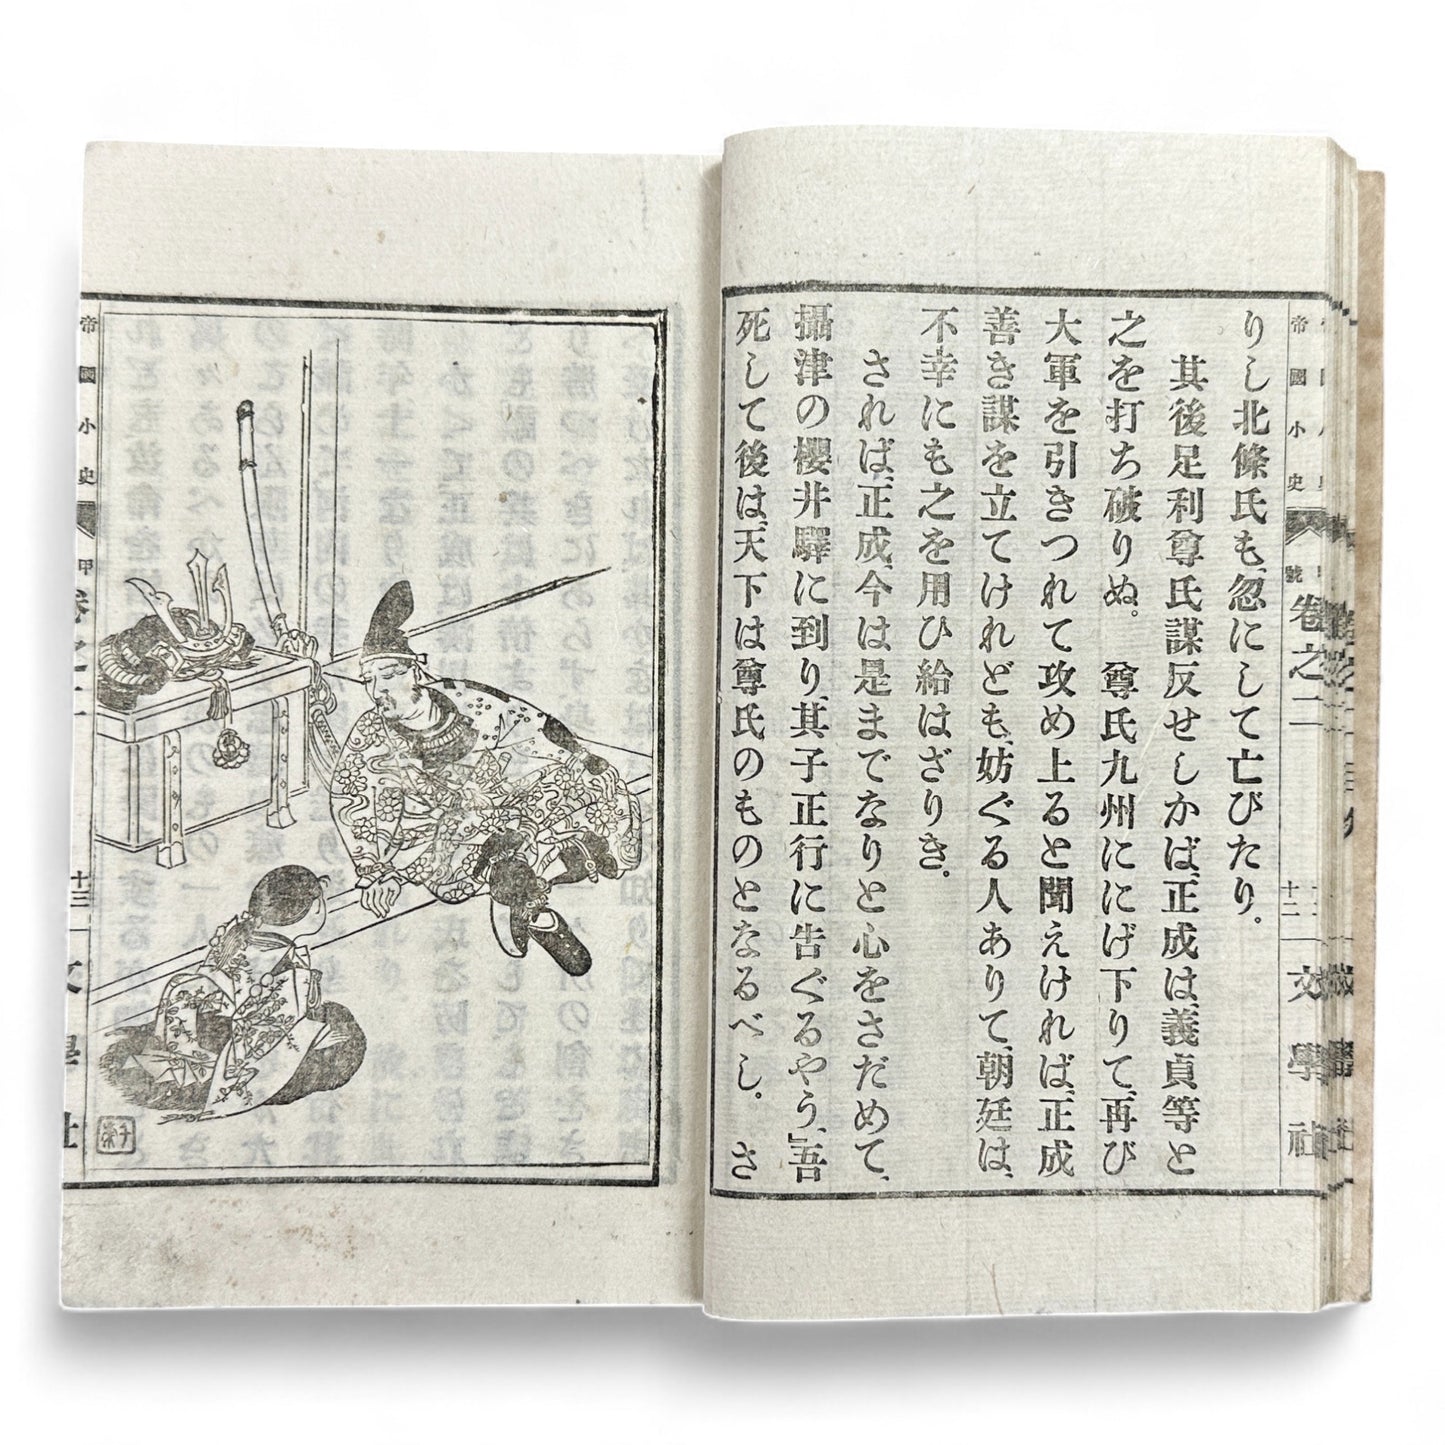 帝國小史 甲號 卷之二 十二 文學社
りし北條氏も、忽にして亡びたり。
其後足利尊氏謀反せしかば、正成は、義貞等と
之を打ち破りぬ。 尊氏九州ににげ下りて、再び
大軍を引きつれて攻め上ると聞えければ、正成
善き謀を立てけれども、妨ぐる人ありて、朝廷は、
不幸にも之を用ひ給はざりき。
されば、正成、今は是までなりと心をさだめて、
攝津の櫻井驛に到り、其子正行に告ぐるやう、「吾
死して後は、天下は尊氏のものとなるべし。 さ
帝國小史 甲 卷之二 十三 文學社